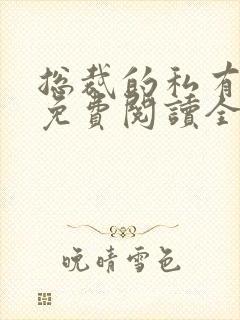 总裁的私有
免費閱讀全
晚晴雪色